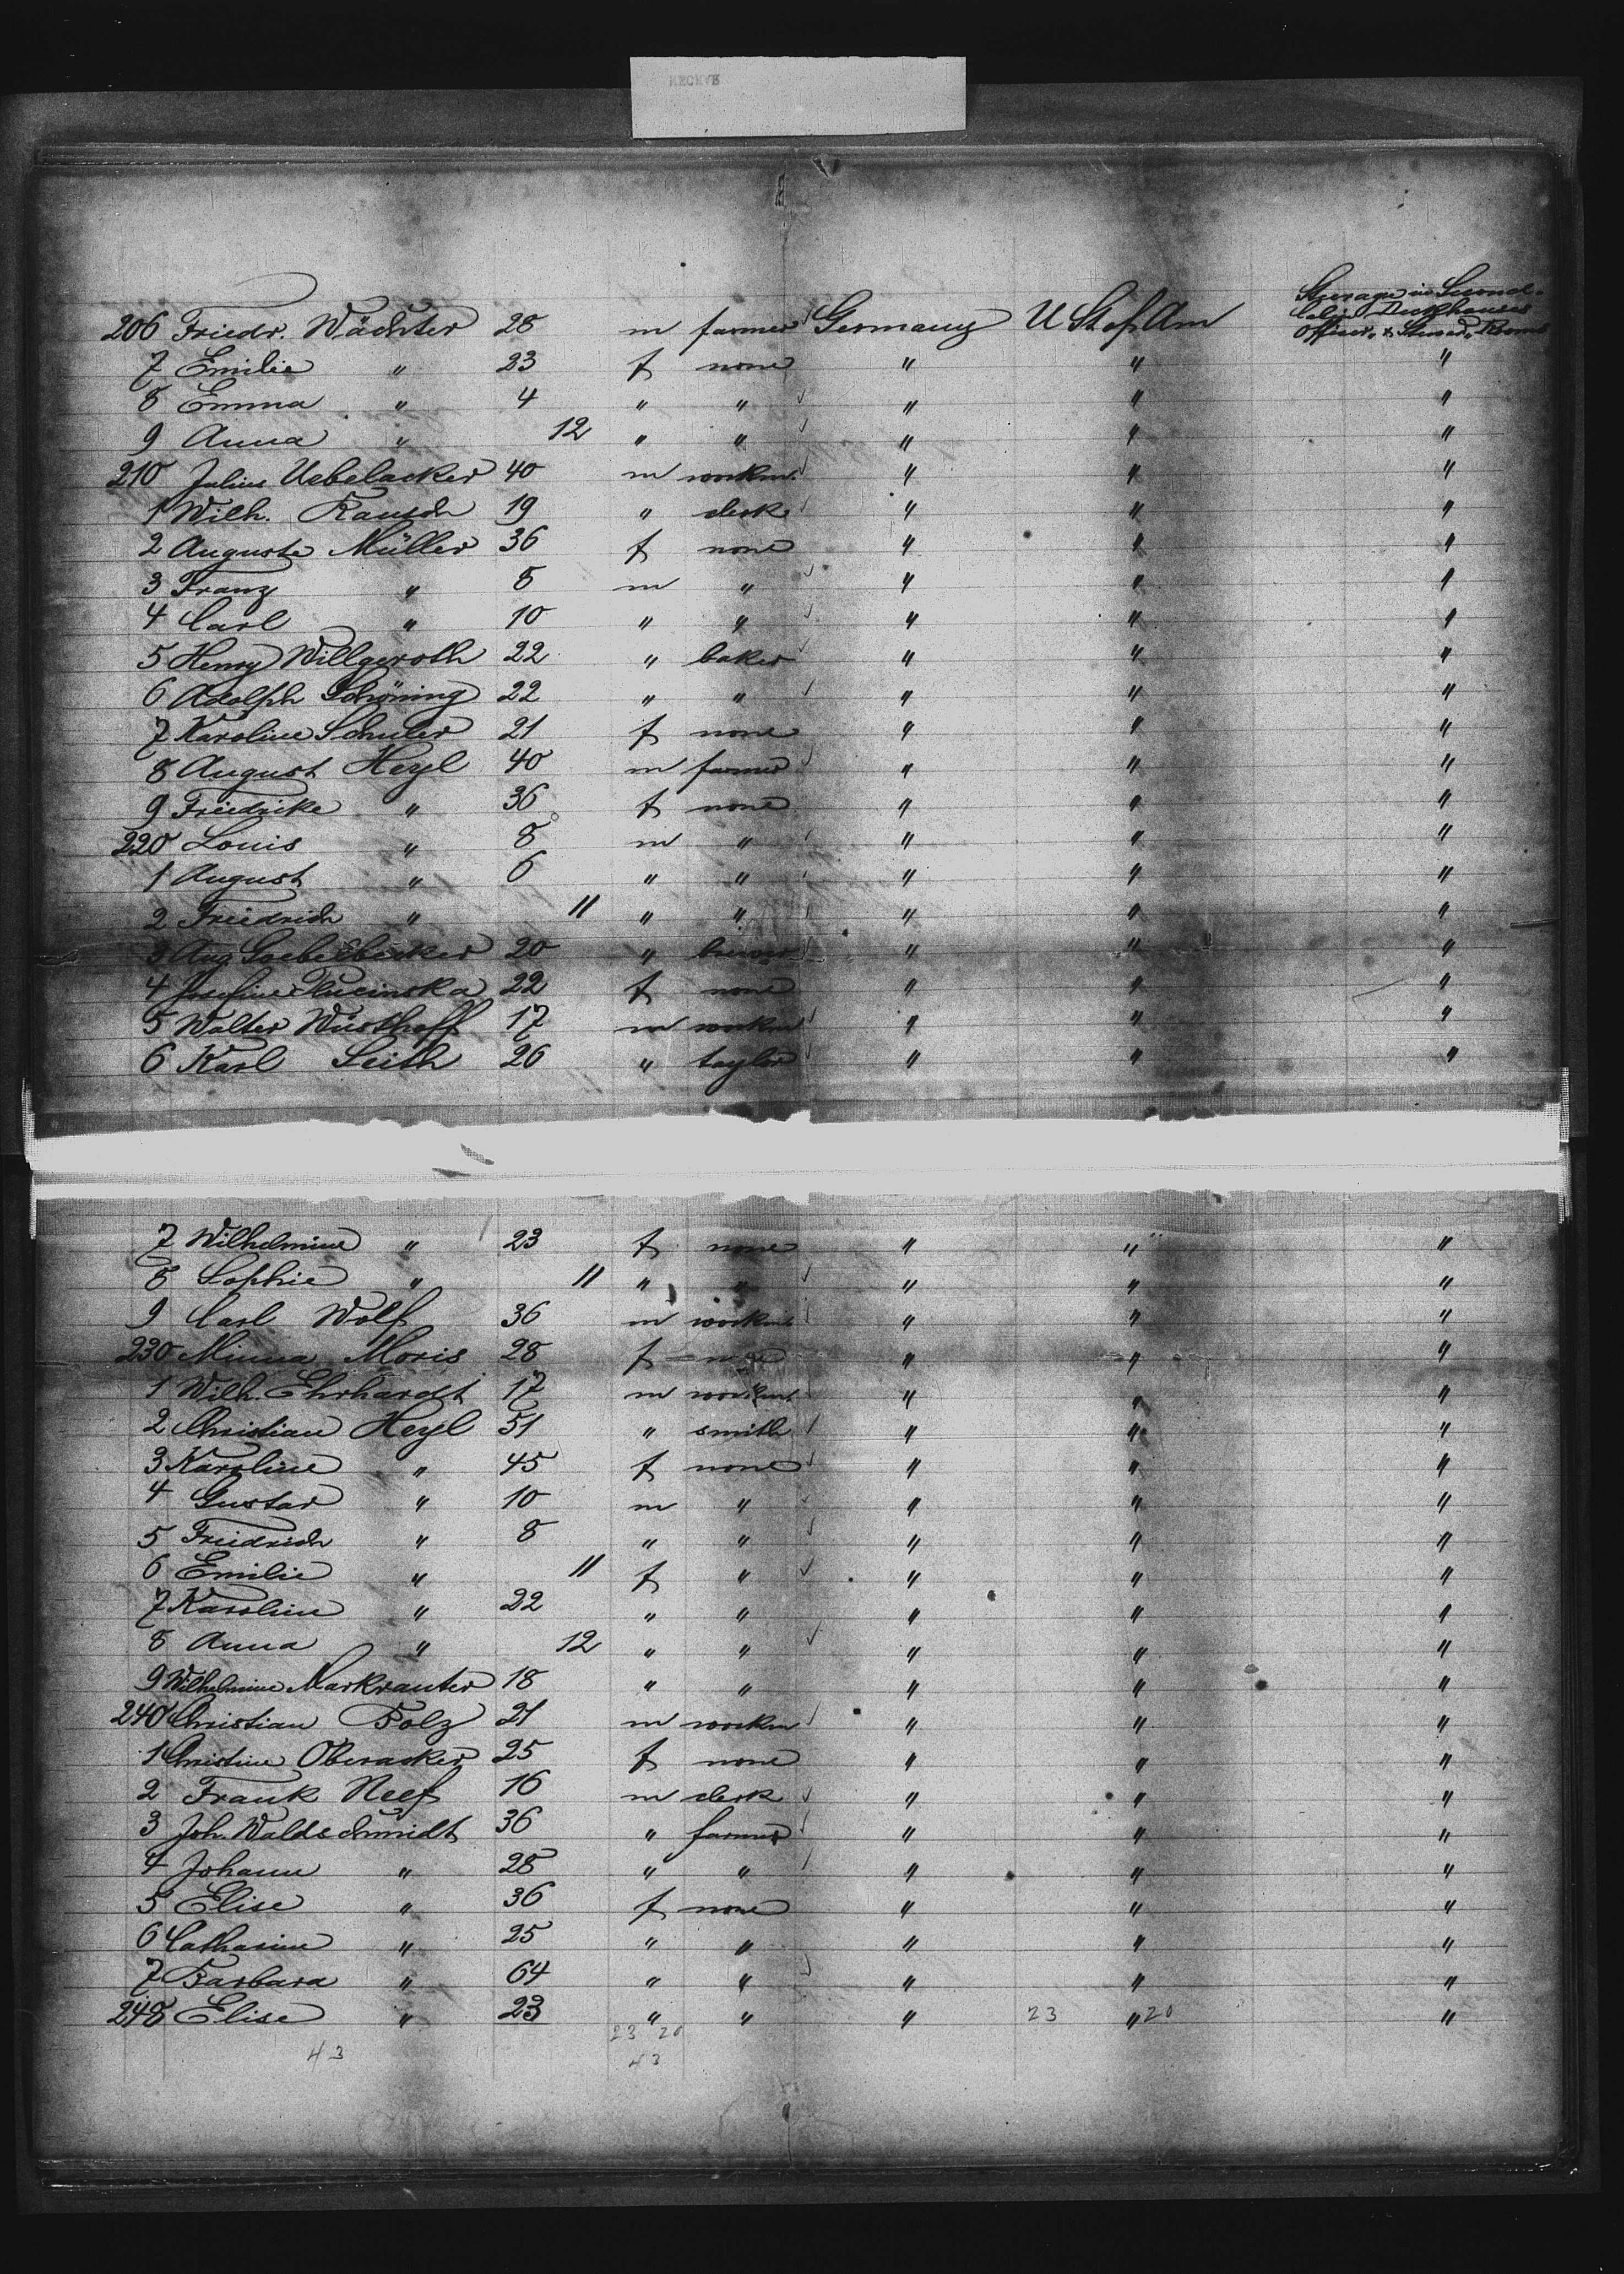 RECEVE
Steerage in Second
Cabin Deckhouses
206 Friedr. Wächter 28 m farmer Germany U St of Am Officer & Steward Rooms
7 Emilie " 23 f none " " "
8 Emma " 4 " " " " "
9 Anna " 12 " " " " "
210 Julius Uebelacker 40 m workm. " " "
1 Wilh. Rausch 19 " clerk " " "
2 Auguste Müller 36 f none " " "
3 Franz " 8 m " " " "
4 Carl " 10 " " " " "
5 Henry Willgeroth 22 " baker " " "
6 Adolph Schöning 22 " " " " "
7 Karoline Schuler 21 f none " " "
8 August Heyl 40 m farmer " " "
9 Friedricke " 36 f none " " "
220 Louis " 8 m " " " "
1 August " 6 " " " " "
2 Friedrich " 11 " " " " "
3 Aug. Goebelbecker 20 " brewer " " "
4 Josefine Flucinska 22 f none " " "
5 Walter Wüsthoff 17 m workm " " "
6 Karl Seith 26 " taylor " " "
7 Wilhelmine " 23 f none " " "
8 Sophie " 11 " " " " "
9 Carl Wolf 36 m workm " " "
230 Minna Moris 28 f none " " "
1 Wilh. Ehrhardt 17 m workm " " "
2 Christian Heyl 51 " smith " " "
3 Karoline " 45 f none " " "
4 Gustav " 10 m " " " "
5 Friedrich " 8 " " " " "
6 Emilie " 11 f " " " "
7 Karoline " 22 " " " " "
8 Anna " 12 " " " " "
9 Wilhelmine Markrauter 18 " " " " "
240 Christian Bolz 21 m workm " " "
1 Christine Oberacker 25 f none " " "
2 Frank Neef 16 m clerk " " "
3 Joh. Waldschmidt 36 " farmer " " "
4 Johann " 28 " " " " "
5 Elise " 36 f none " " "
6 Catharine " 25 " " " " "
7 Barbara " 64 " " " " "
248 Elise " 23 " " " 23 " 20 "
23 20
43 43